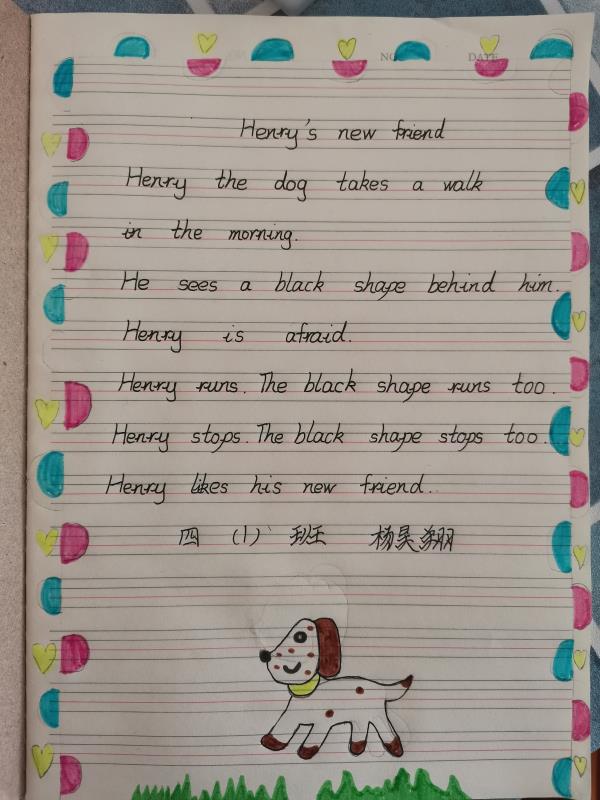 NO.
DATE
Henry's new friend
Henry the dog takes a walk
in the morning.
He sees a black shape behind him.
Henry is afraid.
Henry runs. The black shape runs too.
Henry stops. The black shape stops too.
Henry likes his new friend.
四 (1) 班 杨昊翔